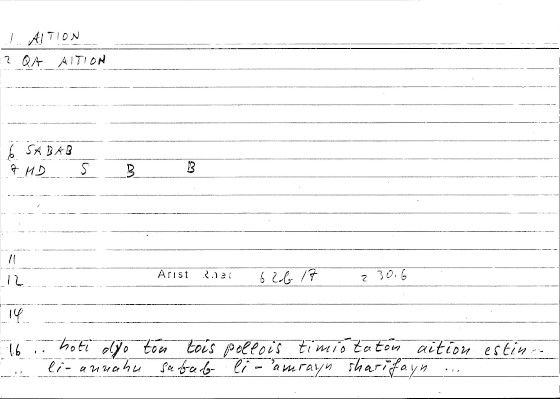 1 AITION
2 QA AITION
6 SABAB
7 MD S B B
11
12 Arist 62b 17 = 30.6
14
16 .. hoti dyo tōn tois pollois timiōtatōn aition estin..
.. li-annahu sabab li-'amrayn sharīfayn ...